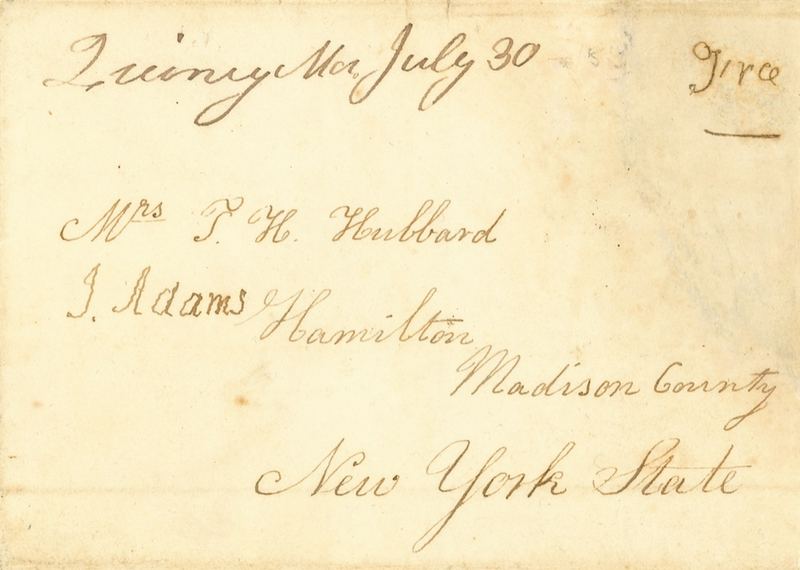 Quincy Ma. July 30
Free
Mrs T. H. Hubbard
J. Adams
Hamilton
Madison County
New York State